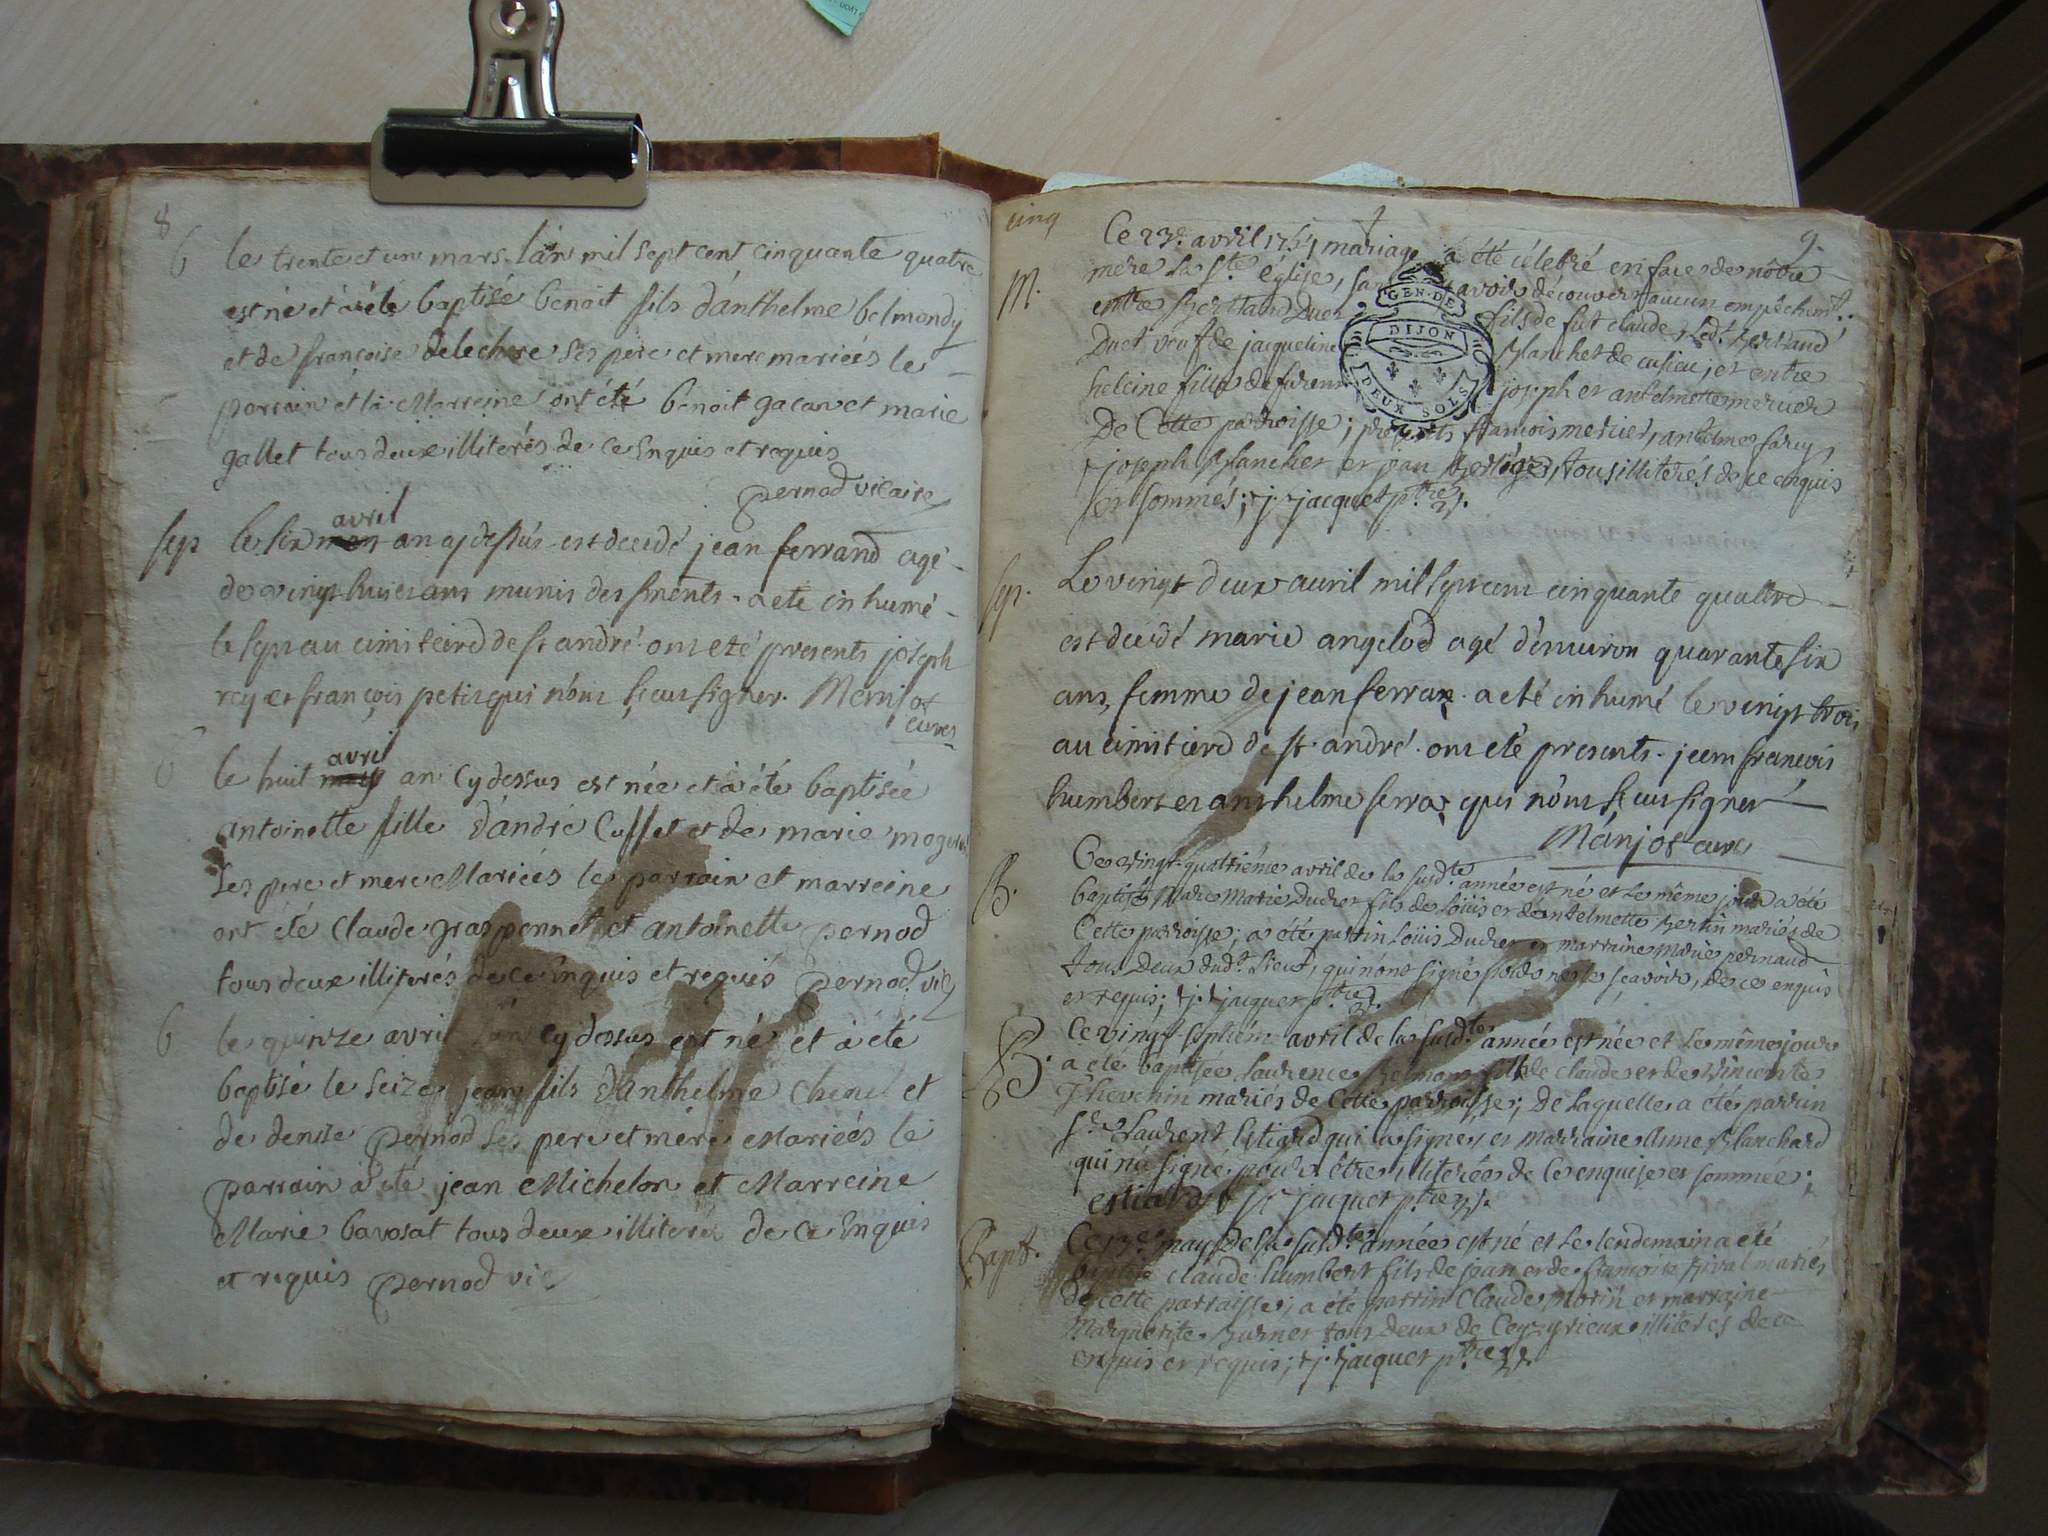 8
b le trente et un mars l'àn mil sept cent cinquante quatre
est né et à été baptisé benoit fils d'anthelme belmondy
et de françoise delechere ses père et mere mariées le
parrain et la Marreine ont été benoit gacan et marie
gallet tous deux illiterés de ce Enquis et requis
pernod vicaire
avril
sep le six an cy dessus est decedé jean ferrand agé
de vingt huict ans munis des sments a eté inhumé
le sept au cimiteire de st andré ont eté presents joseph
rey et françois petit qui n'ont sceus signer. Monjot
curé
avril
le huit may an Cy dessus est née et à été baptisée
antoinette fille d'andré Cuffet et de marie
Ses pere et mere Mariées le parrain et marreine
ont été Claude graspennet et antoinette pernod
tous deux illiterés de Ce Enquis et requis pernod vic
b le quinze avril l'àn cy dessus est né et à été
baptisé le Seize jean fils d'Anthelme Chene et
de denise pernod Ses pere et mere Mariées le
parrain à été jean Michelon et Marreine
Marie bavosat tous deux illiterés de Ce Enquis
et requis pernod vic
cinq
9.
Ce 23e avril 1754 mariage a été célébré en face de nôtre
M. mere la Ste église, avoir découvert aucun empêchemt.
entre Bertrand fils de fut claude, Ledt. Bertrand
Duet veuf de jacqueline Blanchet de cusieu, et entre
heleine fille de joseph et antelmette mercier
De Cette parroisse; présents francois mercier, antelme farcy,
joseph Blanchet et jean tous illiterés de ce enquis
et sommés; j. jacquet ptre
GEN. DE
DIJON
DEUX SOLS
sep. Le vingt deux auril mil sept cent cinquante quattre
est decedé marie angelod agé d'enuiron quarante six
ans, femme de jean ferrax a eté inhumé le vingt trois
au cimitiere de st. andré ont eté presents jean francois
humbert et anthelme ferrax qui n'ont sceus signer
Monjot curé
B. Ce vingt quatriéme avril de la susdte année est né et le même jour a été
baptisé Marie Ducret fils de Loüis et d'antelmette Bertin mariés de
Cette parroisse; a été parrin Loüis Ducret et marraine Marie pernaud
tous Deux dudt. Lieu, qui n'ont signé pour ne le sçavoir, de ce enquis
et requis; j. jacquet ptre
B. Ce vingt septiém avril de la susdte année est née et le même jour
a eté baptisée Laurence Belmont fille de claude et de Vincente
Thevenin mariés de Cette parroisse; De laquelle a été parrin
Sr. Laurent Estiard qui a signé, et marraine Anne Blanchard
qui n'a signé pour être illiterée de Ce enquise et sommée;
estiard j. jacquet ptre
Bapt. Ce 13e may De la susdte année est né et le lendemain a eté
baptisé claude humbert fils de jean et de francoise Rival mariés
de cette parroisse; a été parrin Claude Morin et marraine
Marguerite Burnet tous deux de Ceyzyrieux illiterés de ce
enquis et requis; j. jacquet ptre